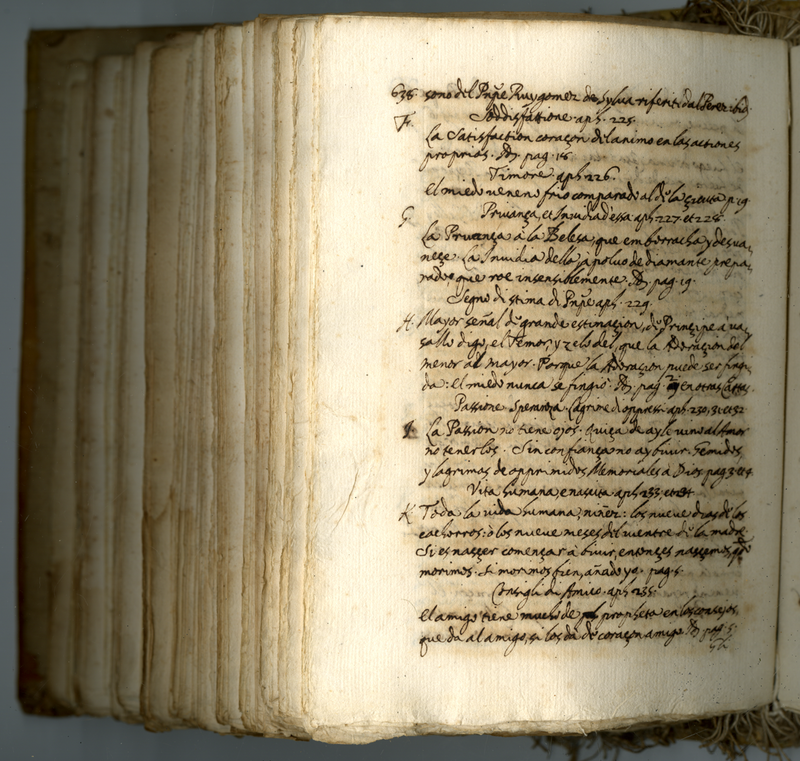 638 sono del Pñpe Ruygomez de Sylva riferiti dal Perez. ibid.
Sodisfattione aph. 225.
F. La Satisfaction coraçon del animo en las actiones
proprias. pag. 18.
Timore aph. 226.
el miedo veneno frio comparado al de la çicuta p. 19
G. Privança, et Invidia d'essa aph. 227. et 228.
La Privança a la Belesa, que emborracha, y desva-
neçe. La Invidia della a polvo de diamante prepa-
rado que roe insensiblemente. pag. 19.
Segno di stima di Pñpe aph. 229.
H. Mayor señal de grande estimaçion, de Principe a va-
sallo digo, el Temor, y zelo del, que la Adoraçion del
menor al mayor. Porque la Adoraçion puede ser fingi-
da: el miedo nunca se fingio. pag. en otras Cartas
Passione Speranza Lagrime di oppressi aph. 230, 31. et 32
I. La Passion no tiene ojos. Quiça de ay le vino al Amor
no tenerlos. Sin confiança no ay bivir. Gemidos
y lagrimas de opprimidos Memoriales a Dios. pag. 3. et 4.
Vita humana, e nascita aph. 233. et 234
K. Toda la vida humana, niñez: los nueve dias de los
cachorros: ò los nueve meses del vientre de la madre.
Si es nasçer començar à bivir, entonçes nasçemos, qdo
morimos. Si morimos bien, añado yo. pag. 5.
Consigli di Amico. aph. 235.
El amigo tiene mucho de propheta en los consejos,
que da al amigo, si los da de coraçon amigo. pag. 5.